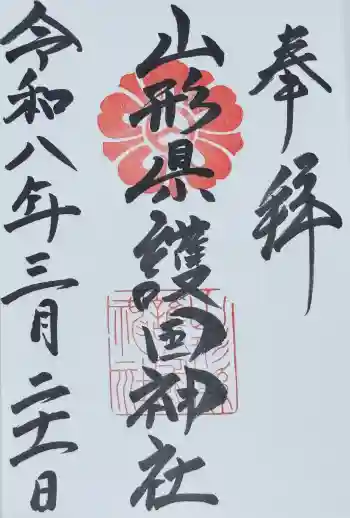 奉拜
山形県護国神社
令和八年三月二十一日